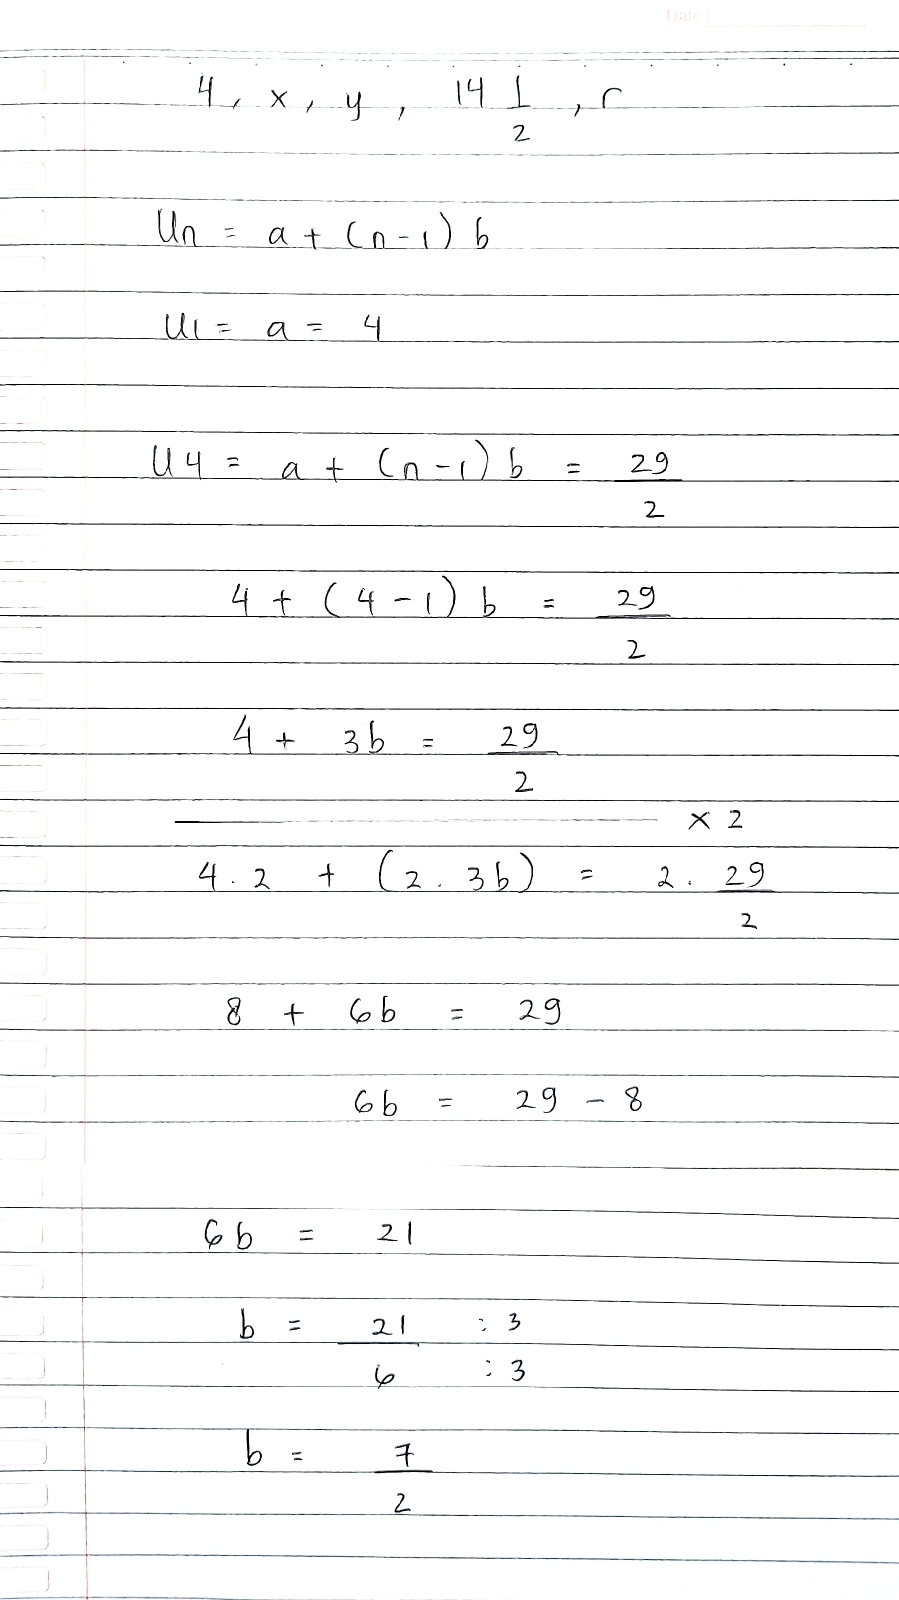 Date :
4, x, y, 14 1/2, r
Un = a + (n-1) b
U1 = a = 4
U4 = a + (n-1) b = 29/2
4 + (4-1) b = 29/2
4 + 3b = 29/2
x 2
4.2 + (2.3b) = 2. 29/2
8 + 6b = 29
6b = 29 - 8
6b = 21
b = 21/6 :3 :3
b = 7/2